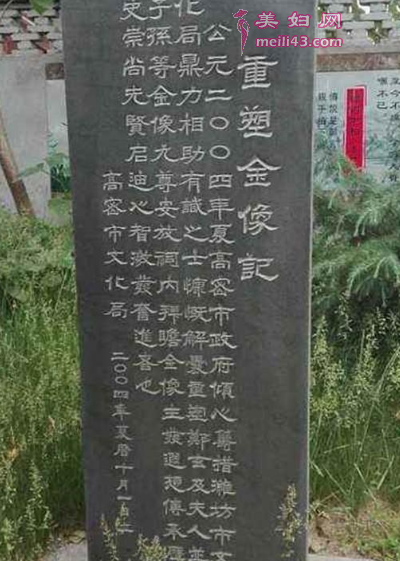 美妇网
meili43.com
重塑金像記
公元二〇〇四年夏高密市政府傾心籌措濰坊市文
化局鼎力相助有識之士慷慨解囊重塑鄭玄及夫人並
子孫等金像九尊安放祠内拜瞻金像生發遐想傳承歷
史崇尚先賢启迪心智激發奮進者也
高密市文化局
二〇〇四年夏曆十月一日